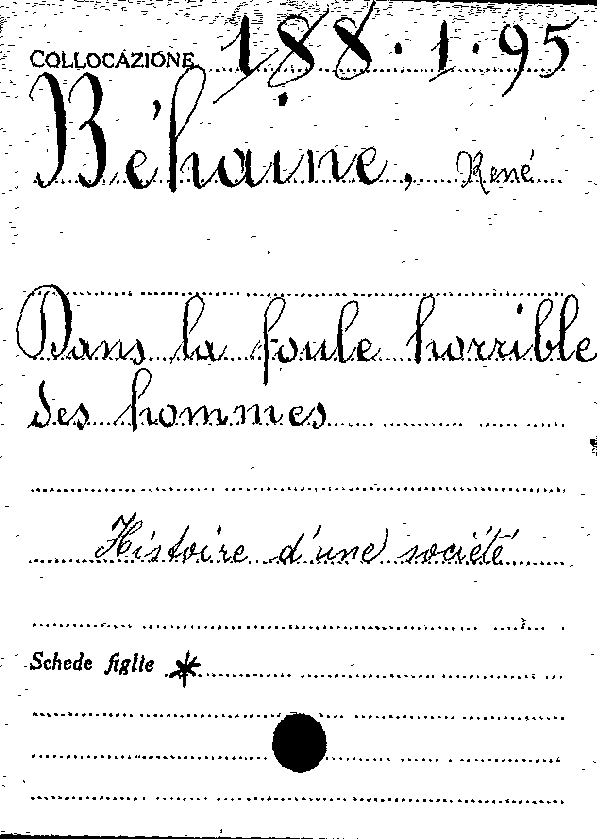 COLLOCAZIONE 188.1.95
Béhaine, René
Dans la foule horrible
des hommes
Histoire d'une société
Schede figlie *